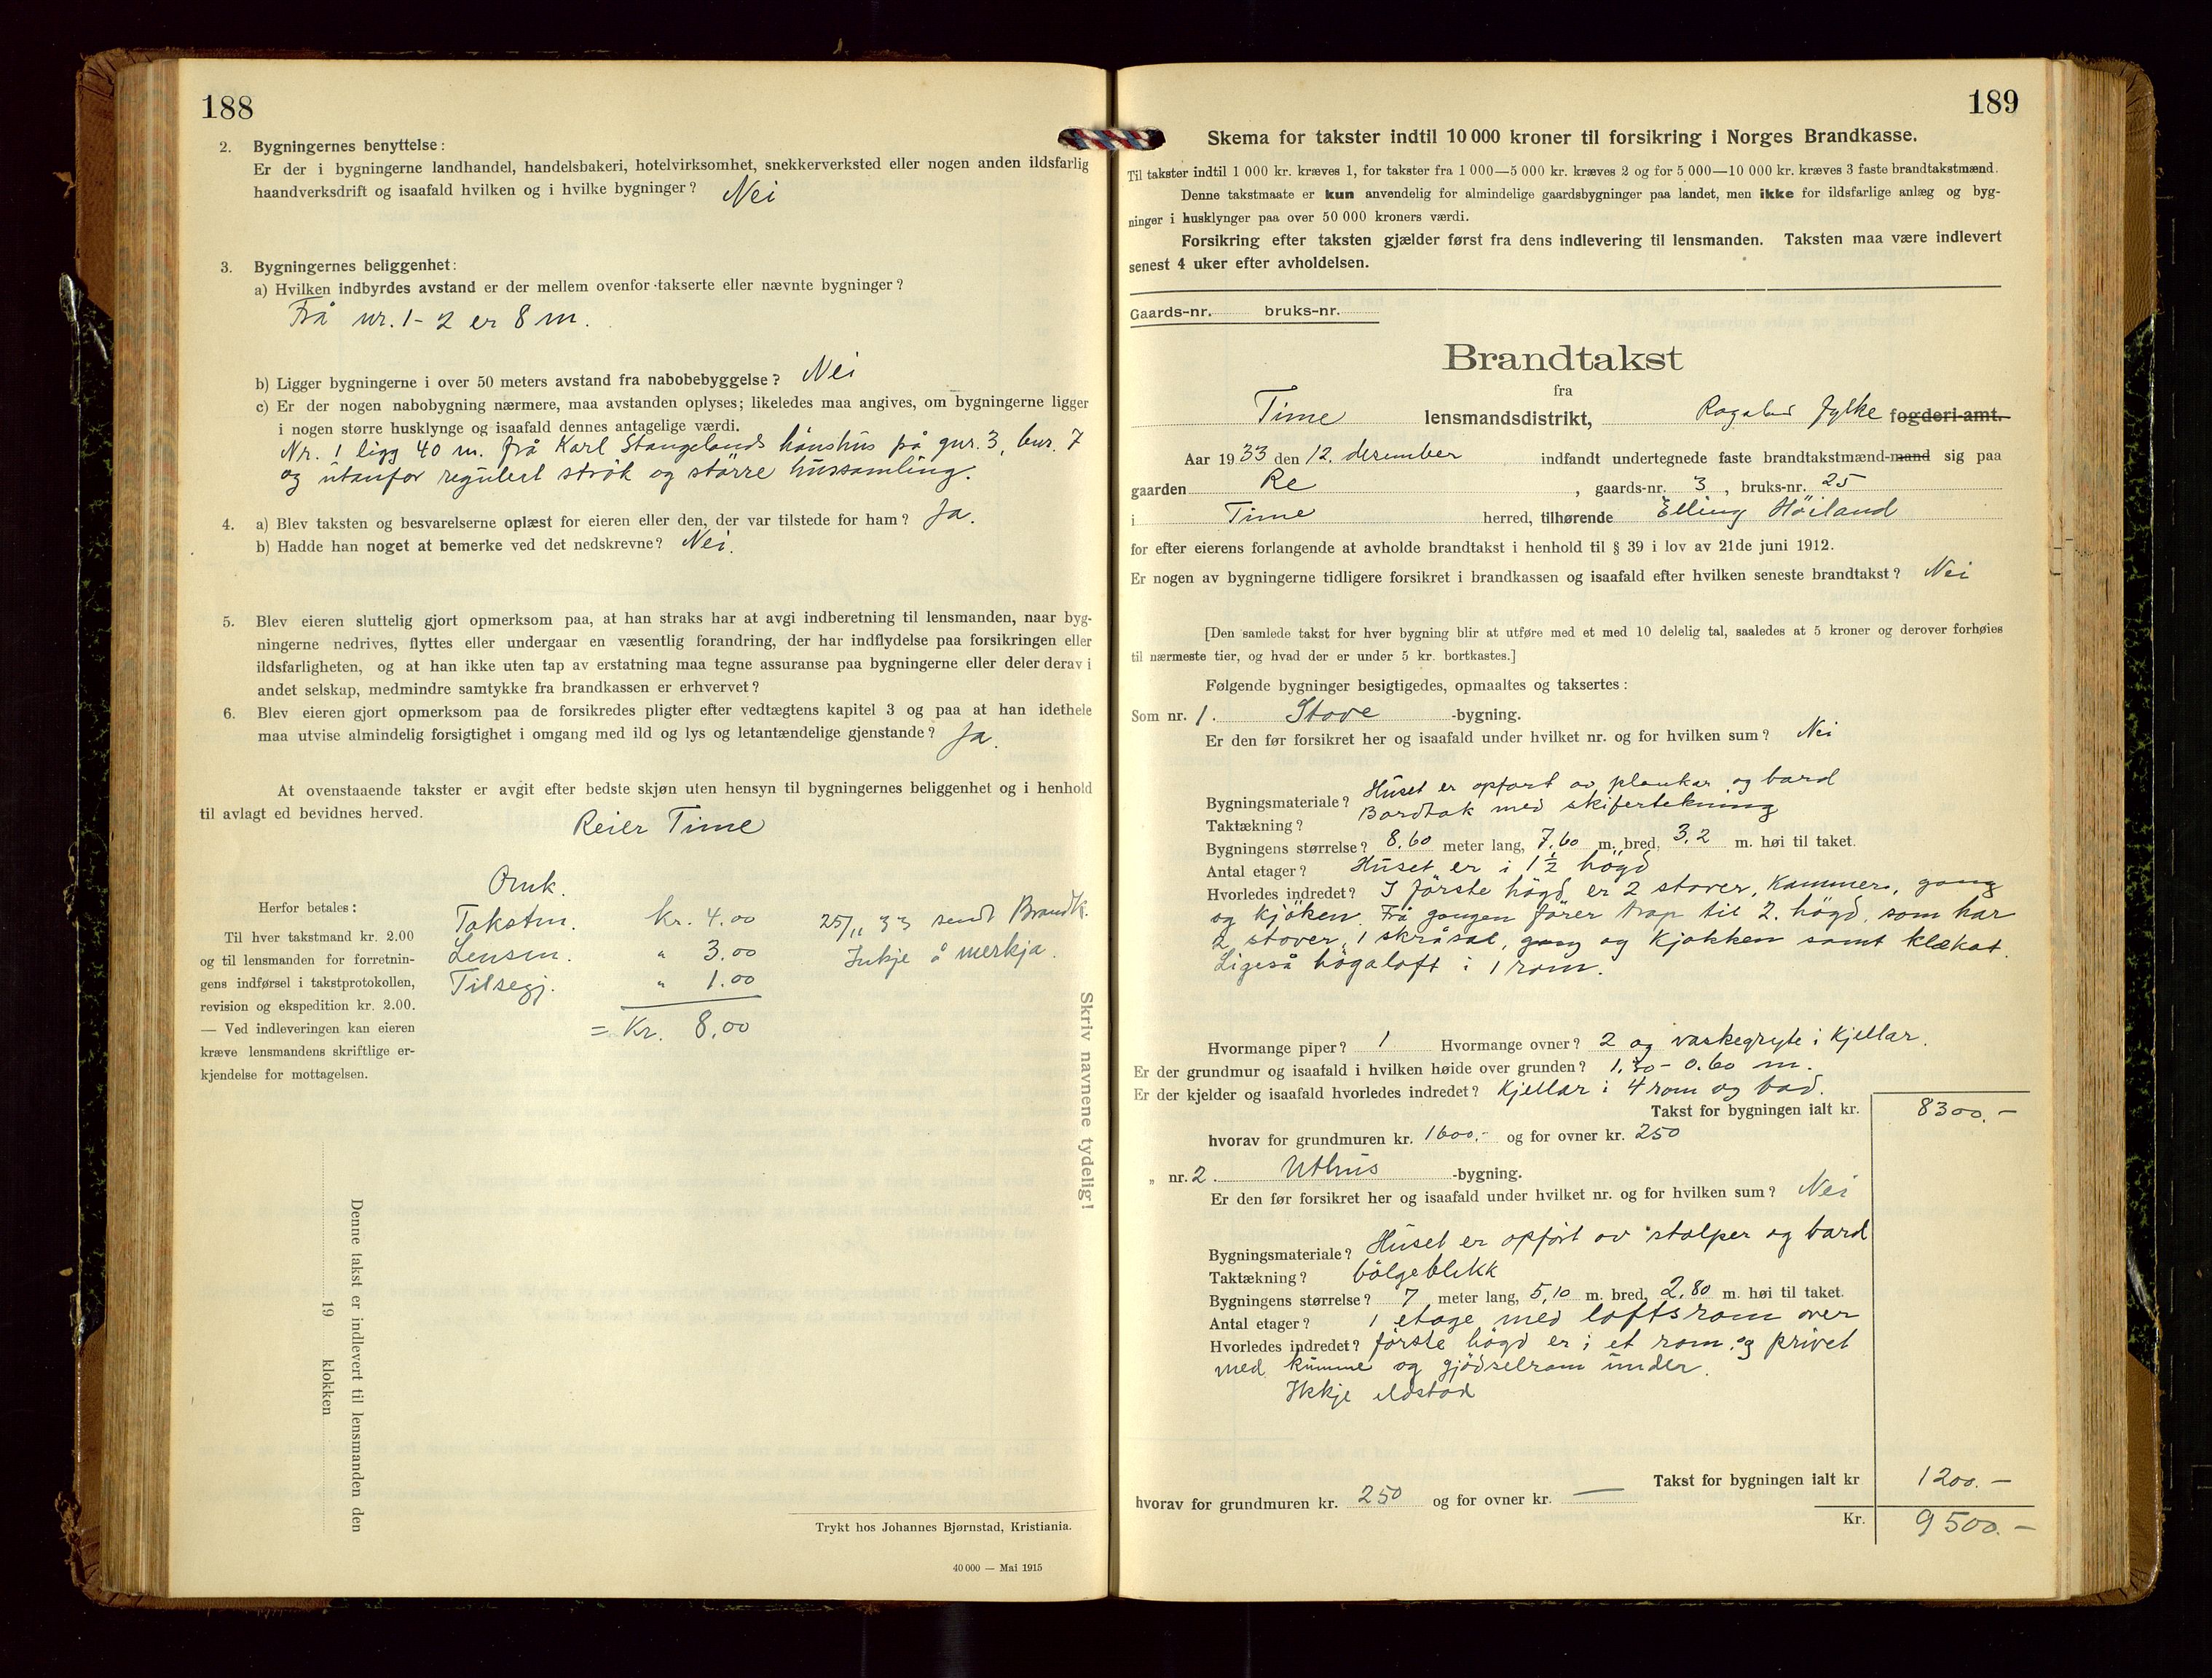 188
2. Bygningernes benyttelse:
Er der i bygningerne landhandel, handelsbakeri, hotelvirksomhet, snekkerverksted eller nogen anden ildsfarlig
haandverksdrift og isaafald hvilken og i hvilke bygninger? Nei
3. Bygningernes beliggenhet:
a) Hvilken indbyrdes avstand er der mellem ovenfor takserte eller nævnte bygninger?
Frå nr. 1 - 2 er 8 m.
b) Ligger bygningerne i over 50 meters avstand fra nabobebyggelse? Nei
c) Er der nogen nabobygning nærmere, maa avstanden oplyses; likeledes maa angives, om bygningerne ligger
i nogen større husklynge og isaafald dennes antagelige værdi.
Nr. 1 ligg 40 m. frå Karl Stangelands hønshus på gnr. 3, bnr. 7
og utanfor regulert strøk og större hussamling.
4. a) Blev taksten og besvarelserne oplæst for eieren eller den, der var tilstede for ham? Ja.
b) Hadde han noget at bemerke ved det nedskrevne? Nei.
5. Blev eieren sluttelig gjort opmerksom paa, at han straks har at avgi indberetning til lensmanden, naar byg-
ningerne nedrives, flyttes eller undergaar en væsentlig forandring, der har indflydelse paa forsikringen eller
ildsfarligheten, og at han ikke uten tap av erstatning maa tegne assuranse paa bygningerne eller deler derav i
andet selskap, medmindre samtykke fra brandkassen er erhvervet?
6. Blev eieren gjort opmerksom paa de forsikredes pligter efter vedtægtens kapitel 3 og paa at han idethele
maa utvise almindelig forsigtighet i omgang med ild og lys og letantændelige gjenstande? Ja.
At ovenstaaende takster er avgit efter bedste skjøn uten hensyn til bygningernes beliggenhet og i henhold
til avlagt ed bevidnes herved.
Reier Time
Omk.
Takstm. kr. 4.00
Lensm. " 3.00
Tilsegj. " 1.00
= Kr. 8,00
25/11 33 sendt Brandk.
Inkje å merkja.
Herfor betales:
Til hver takstmand kr. 2.00
og til lensmanden for forretnin-
gens indførsel i takstprotokollen,
revision og ekspedition kr. 2.00.
— Ved indleveringen kan eieren
kræve lensmandens skriftlige er-
kjendelse for mottagelsen.
Skriv navnene tydelig!
Denne takst er indlevert til lensmanden den
19 klokken
Trykt hos Johannes Bjørnstad, Kristiania.
40 000 — Mai 1915
189
Skema for takster indtil 10 000 kroner til forsikring i Norges Brandkasse.
Til takster indtil 1 000 kr. kræves 1, for takster fra 1 000—5 000 kr. kræves 2 og for 5 000—10 000 kr. kræves 3 faste brandtakstmænd.
Denne takstmaate er kun anvendelig for almindelige gaardsbygninger paa landet, men ikke for ildsfarlige anlæg og byg-
ninger i husklynger paa over 50 000 kroners værdi.
Forsikring efter taksten gjælder først fra dens indlevering til lensmanden. Taksten maa være indlevert
senest 4 uker efter avholdelsen.
Gaards-nr. bruks-nr.
Brandtakst
fra
Time lensmandsdistrikt, Rogaland fylke fogderi-amt.
Aar 1933 den 12. desember indfandt undertegnede faste brandtakstmænd-mand sig paa
gaarden Re, gaards-nr. 3, bruks-nr. 25
i Time herred, tilhørende Elling Höiland
for efter eierens forlangende at avholde brandtakst i henhold til § 39 i lov av 21de juni 1912.
Er nogen av bygningerne tidligere forsikret i brandkassen og isaafald efter hvilken seneste brandtakst? Nei
[Den samlede takst for hver bygning blir at utføre med et med 10 delelig tal, saaledes at 5 kroner og derover forhøies
til nærmeste tier, og hvad der er under 5 kr. bortkastes.]
Følgende bygninger besigtigedes, opmaaltes og taksertes:
Som nr. 1. Stove -bygning.
Er den før forsikret her og isaafald under hvilket nr. og for hvilken sum? Nei
Bygningsmateriale? Huset er opført av plankar og bord
Taktækning? Bordtak med skifertekning
Bygningens størrelse? 8,60 meter lang, 7,60 m. bred, 3,2 m. høi til taket.
Antal etager? Huset er i 1½ högd
Hvorledes indredet? I förste högd er 2 stover, kammer, gang
og kjöken. Frå gangen förer trap til 2. högd, som har
2 stover, 1 skråsal, gang og kjøkken samt klekot.
Ligeså högaloft i 1 rom.
Hvormange piper? 1 Hvormange ovner? 2 og vaskegryte i kjellar.
Er der grundmur og isaafald i hvilken høide over grunden? 1,30 - 0.60 m.
Er der kjelder og isaafald hvorledes indredet? Kjellar i 4 rom og bad.
Takst for bygningen ialt kr. 8300.-
hvorav for grundmuren kr. 1600.- og for ovner kr. 250
„ nr. 2. Uthus -bygning.
Er den før forsikret her og isaafald under hvilket nr. og for hvilken sum? Nei
Bygningsmateriale? Huset er opført av stolper og bord
Taktækning? bölgeblikk
Bygningens størrelse? 7 meter lang, 5,10 m. bred, 2,80 m. høi til taket.
Antal etager? 1 etage med loftsrom over
Hvorledes indredet? förste högd er i et rom. og privet
med kumme og gjödselrom under.
Ikkje eldstad
Takst for bygningen ialt kr 1200.-
hvorav for grundmuren kr. 250 og for ovner kr. —
Kr. 9500.-